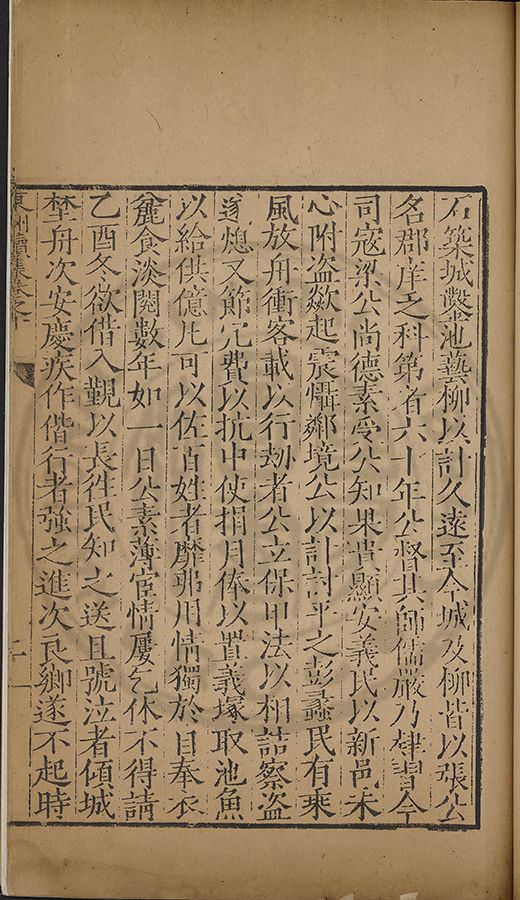 石築城鑿池藝柳以計久遠至今城及柳皆以張公
名郡庠乏科第者六十年公督其師儒嚴乃肄習今
司寇梁公尚德素受公知果貴顯安義民以新邑未
心附盜歘起震懾鄰境公以計討平之彭蠡民有乘
風放舟衝客載以行劫者公立保甲法以相詰察盜
遂熄又節冗費以抗中使捐月俸以置義塚取池魚
以給供億凡可以佐百姓者靡弗用情獨於自奉衣
麄食淡閱數年如一日公素薄宦情屢乞休不得請
乙酉冬欲借入覲以長往民知之送且號泣者傾城
埜舟次安慶疾作偕行者強之進次良鄉遂不起時
東洲續集卷之十